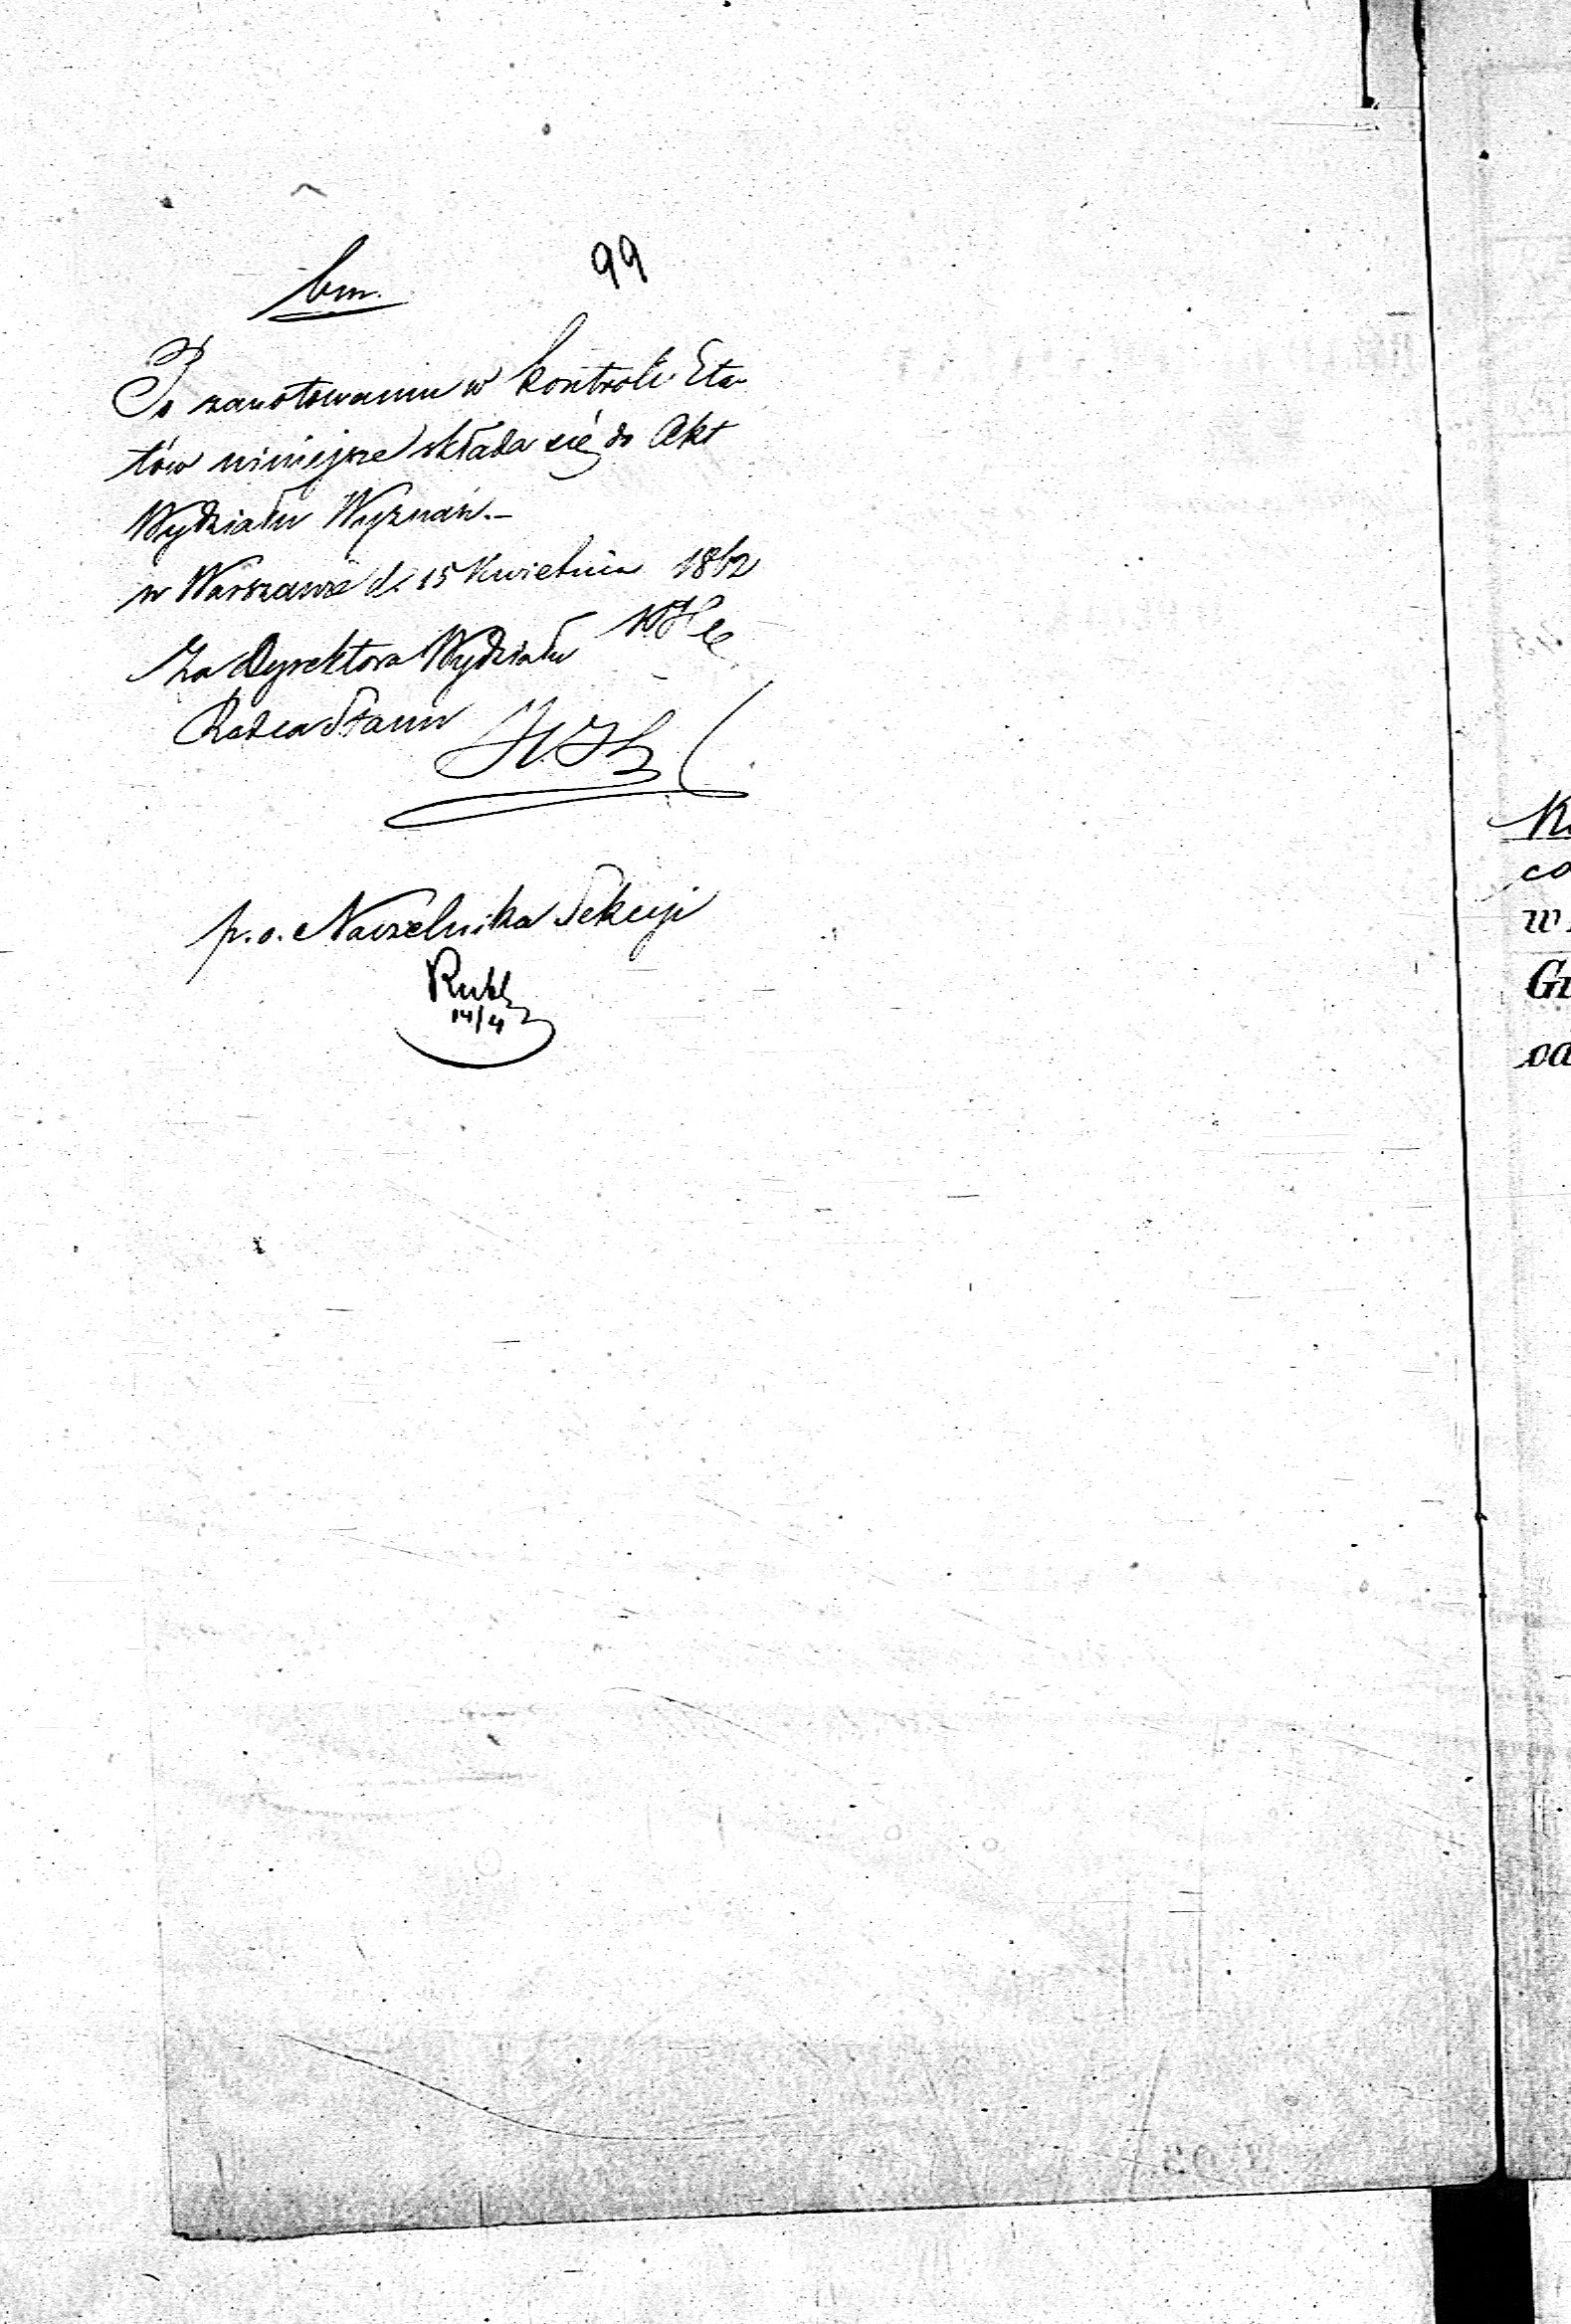 bm.
99
Po zanotowaniu w kontroli Eta-
tów niniejsze składa się do Akt
Wydziału Wyznań.—
w Warszawie d. 15 Kwietnia 1862
Za Dyrektora Wydziału
Radca Stanu
p.o. Naczelnika Sekcyi
14/4
K
co
w
Gu
od